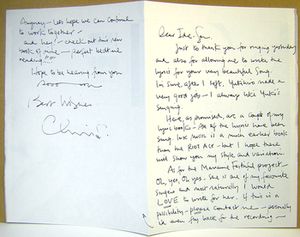 Dear
Just to thank you for ringing yesterday
and also for allowing me to write the
lyrics for your very beautiful song.
I'm sure, after I left, Yukihiro made a
very good job - I always like Yuki's
singing.
Here, as promised, are a couple of my
lyric books - of the lyrics have been
sung. is a much earlier book
than the - but I hope these
will show you my style and variation.
As for the Marianne Faithfull project -
Oh, yes, Oh yes. She is one of my favourite
singers and most naturally I would
LOVE to write for her. If this is a
possibility - please contact me - possibly
I'm even fly back for the recording -
Anyway - let's hope we can continue
to work together -
and hey! check out this new
book of mine - perfect bedtime
reading!
Hope to be hearing from you
soon
Best Wishes
Chris